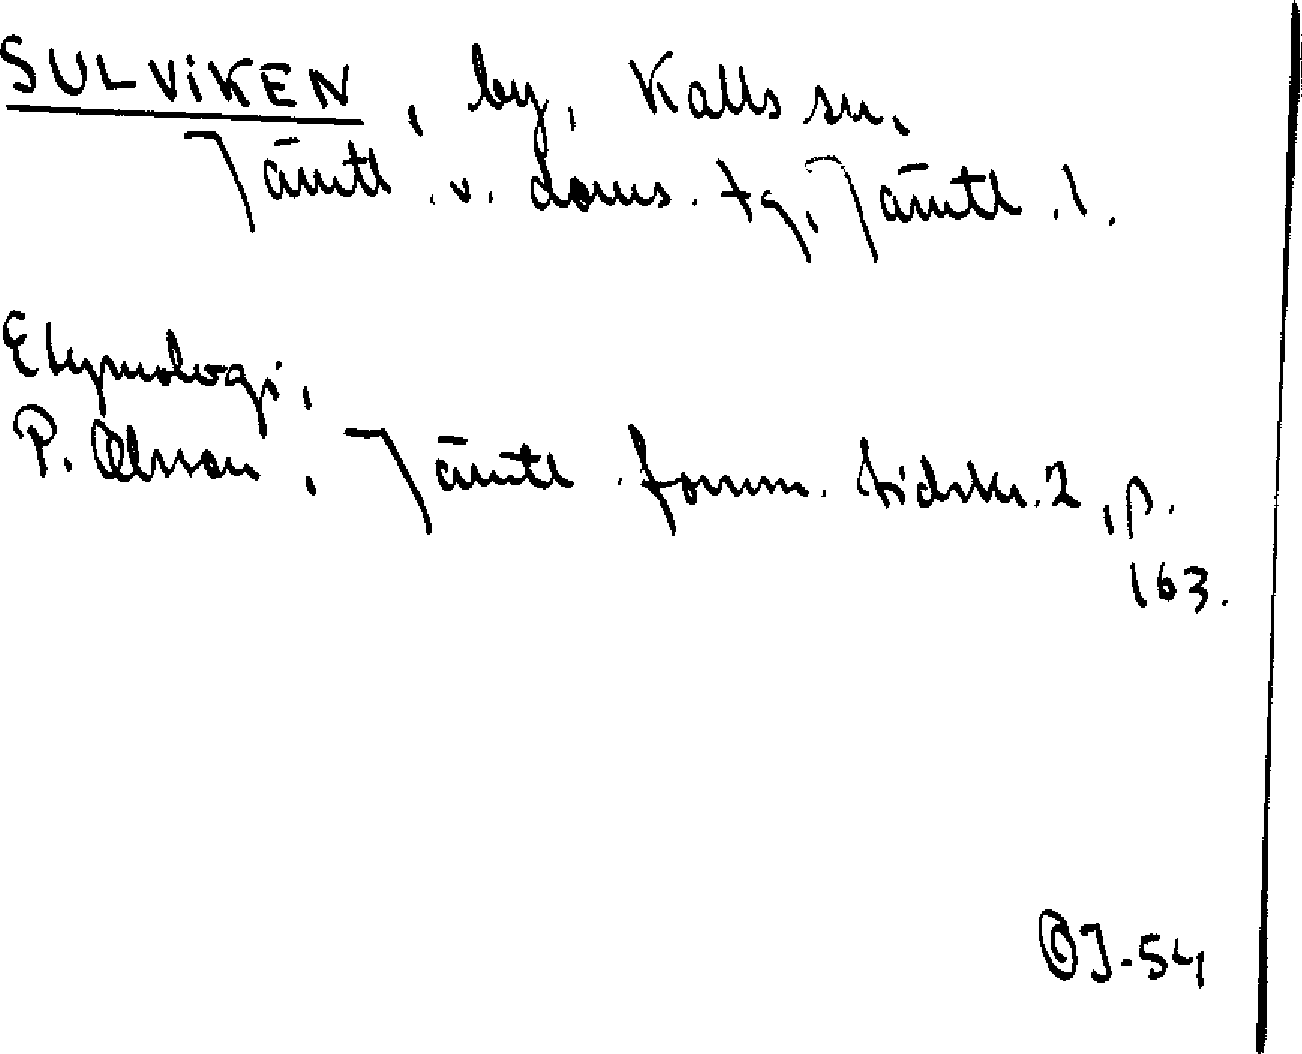 SULVIKEN, by, Kalls sn,
Jämtl. v. doms. tg, Jämtl. l.
Etymologi,
P. Olsson, Jämtl. fornm. tidskr. 2, p.
163.
OJ-54